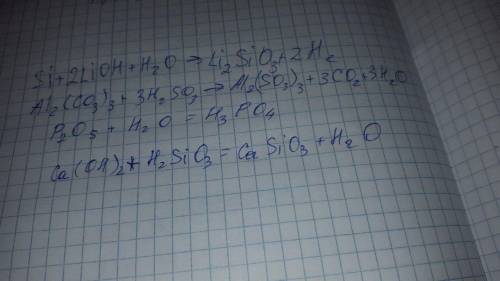 Si+2LiOH+H₂O→Li₂SiO₃+2H₂
Al₂(CO₃)₃+3H₂SO₃→Al₂(SO₃)₃+3CO₂+3H₂O
P₂O₅+H₂O=H₃PO₄
Ca(OH)₂+H₂SiO₃=CaSiO₃+H₂O